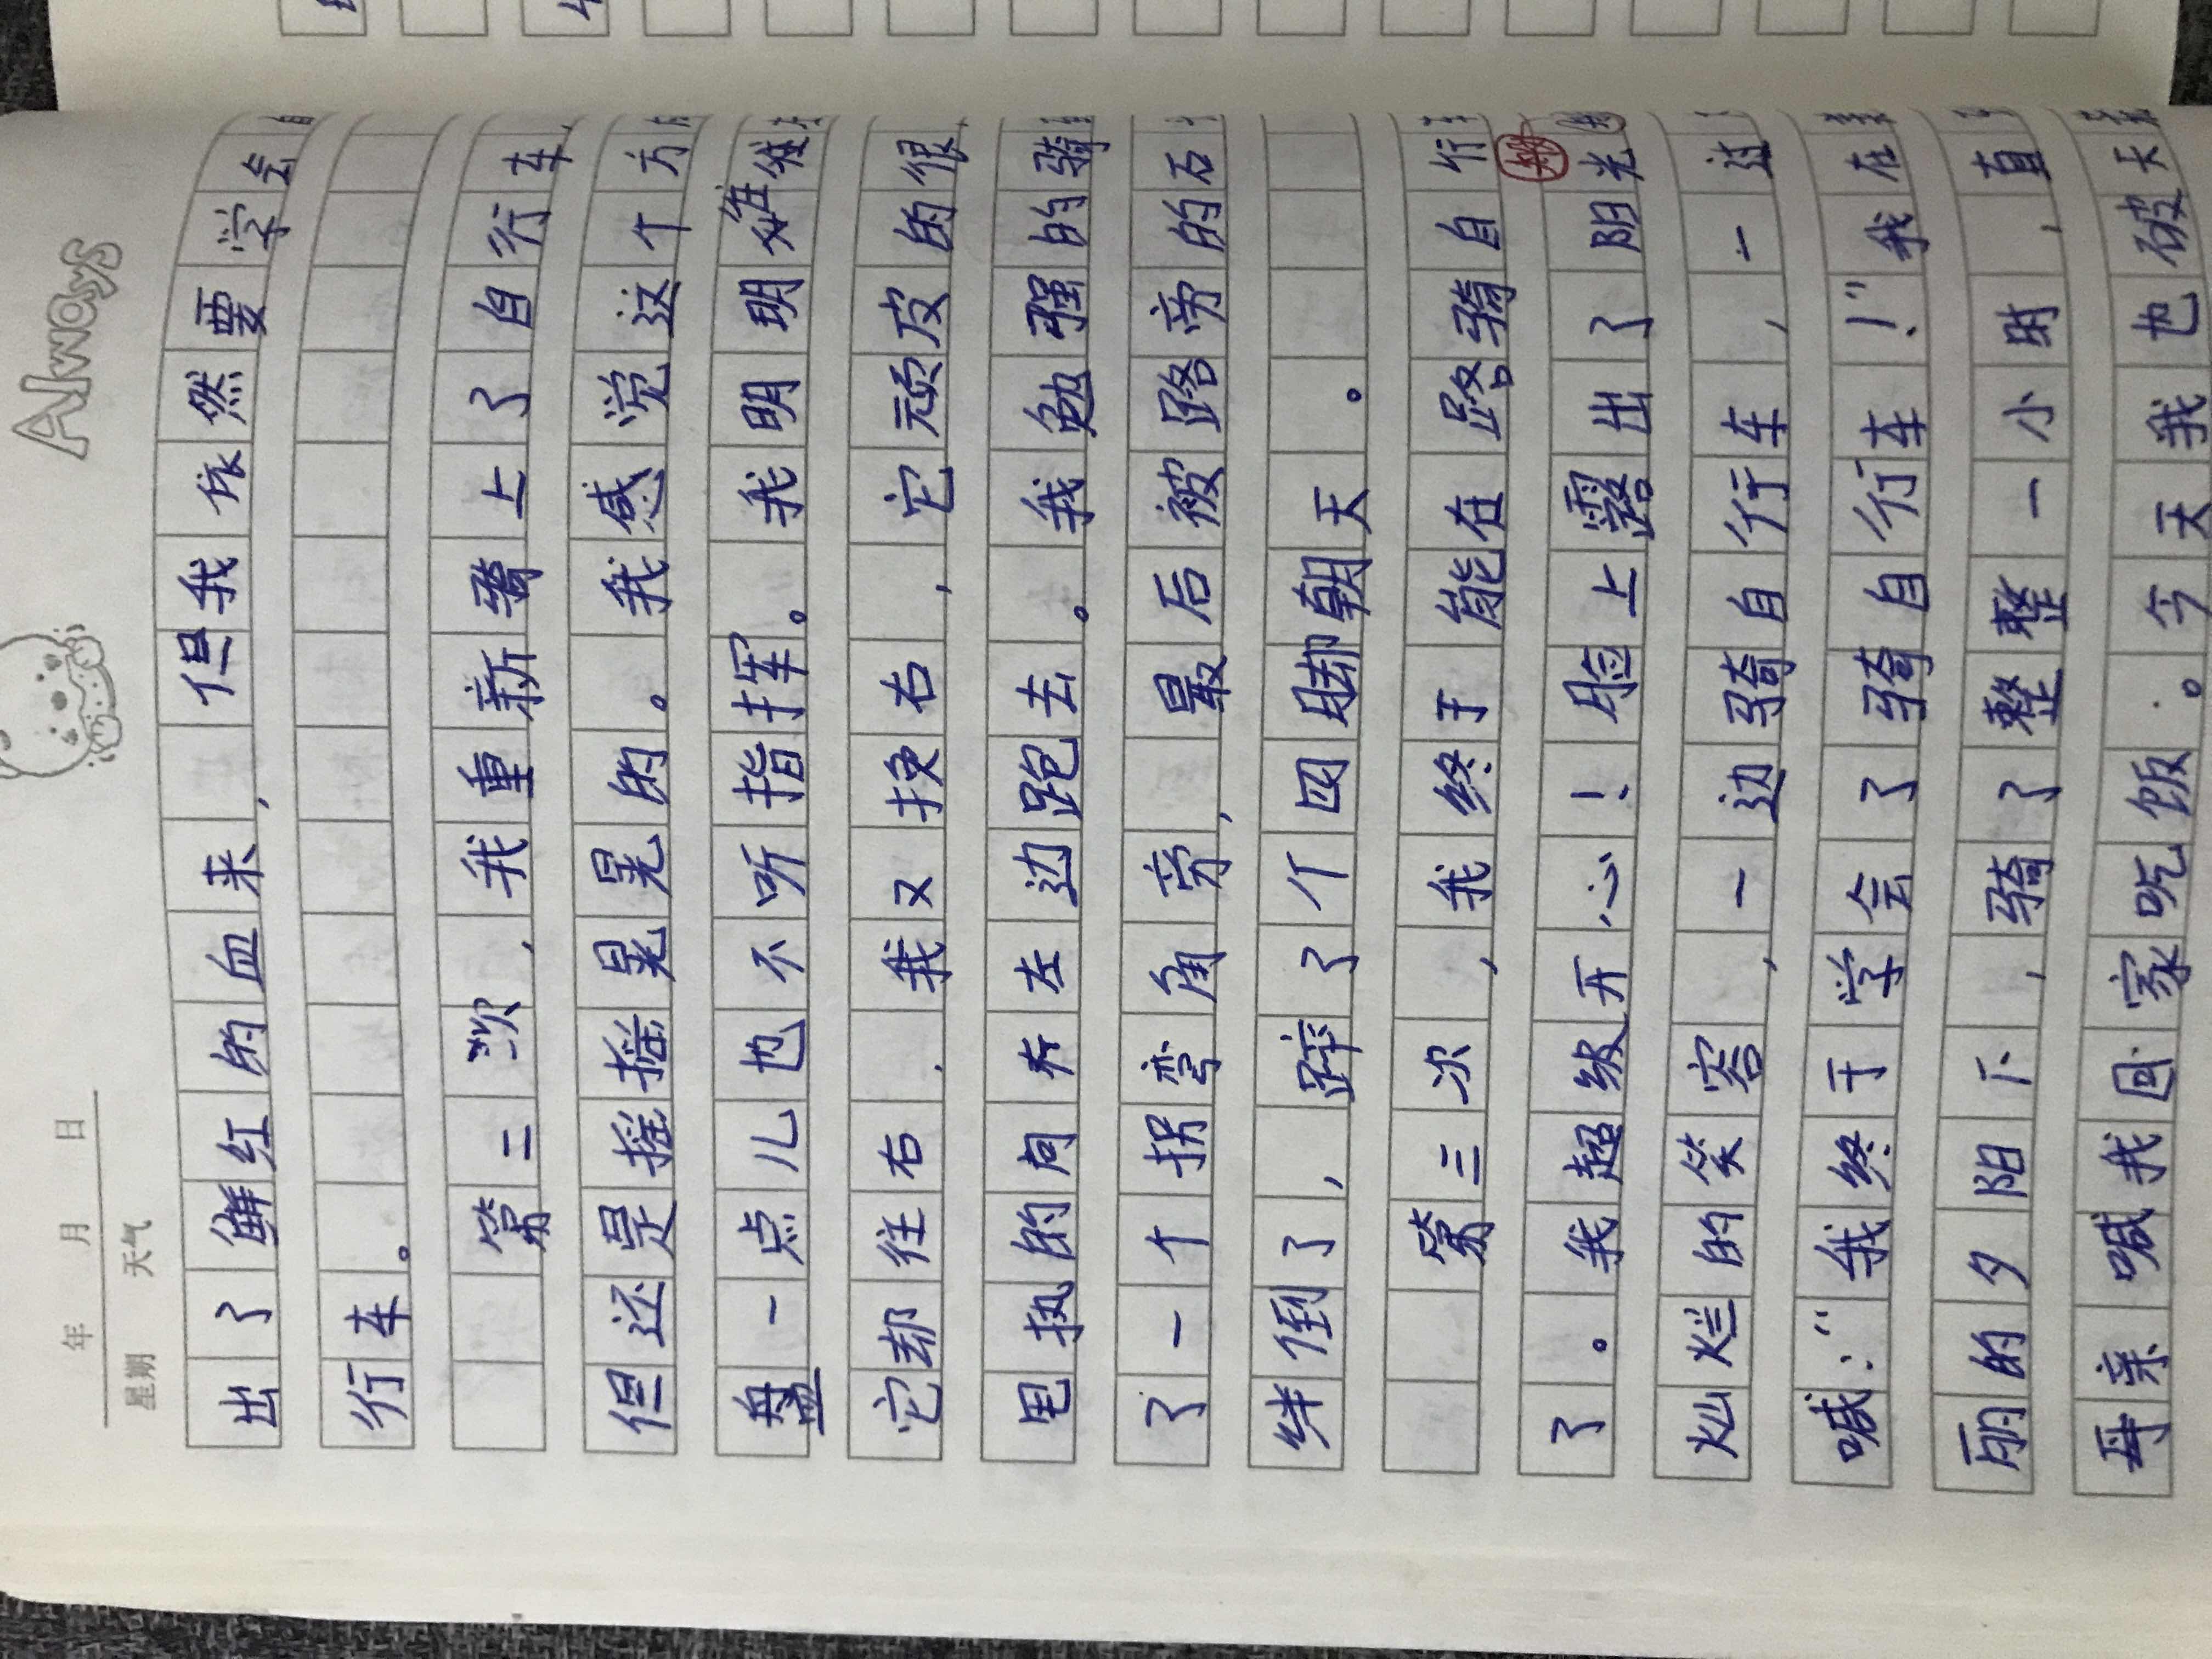 Always
年 月 日
星期 天气
出了鲜红的血来,但我依然要学会
行车。
第二次,我重新骑上了自行车,
但还是摇摇晃晃的。我感觉这个方
盘一点儿也不听指挥。我明明往
它却往右.我又换右,它顽皮的很
甩执的向左边跑去。我勉强的骑
了一个拐弯角旁,最后被路旁的石
绊倒了,蹿了个四脚朝天。
第三次,我终于能在路骑自行
了。我超级开心!脸上露出了阳光
灿烂的笑容,一边骑自行车,一边
喊:“我终于学会了骑自行车!”我在
丽的夕阳下,骑了整整一小时,直
母亲喊我回家吃饭.。今天我也破天